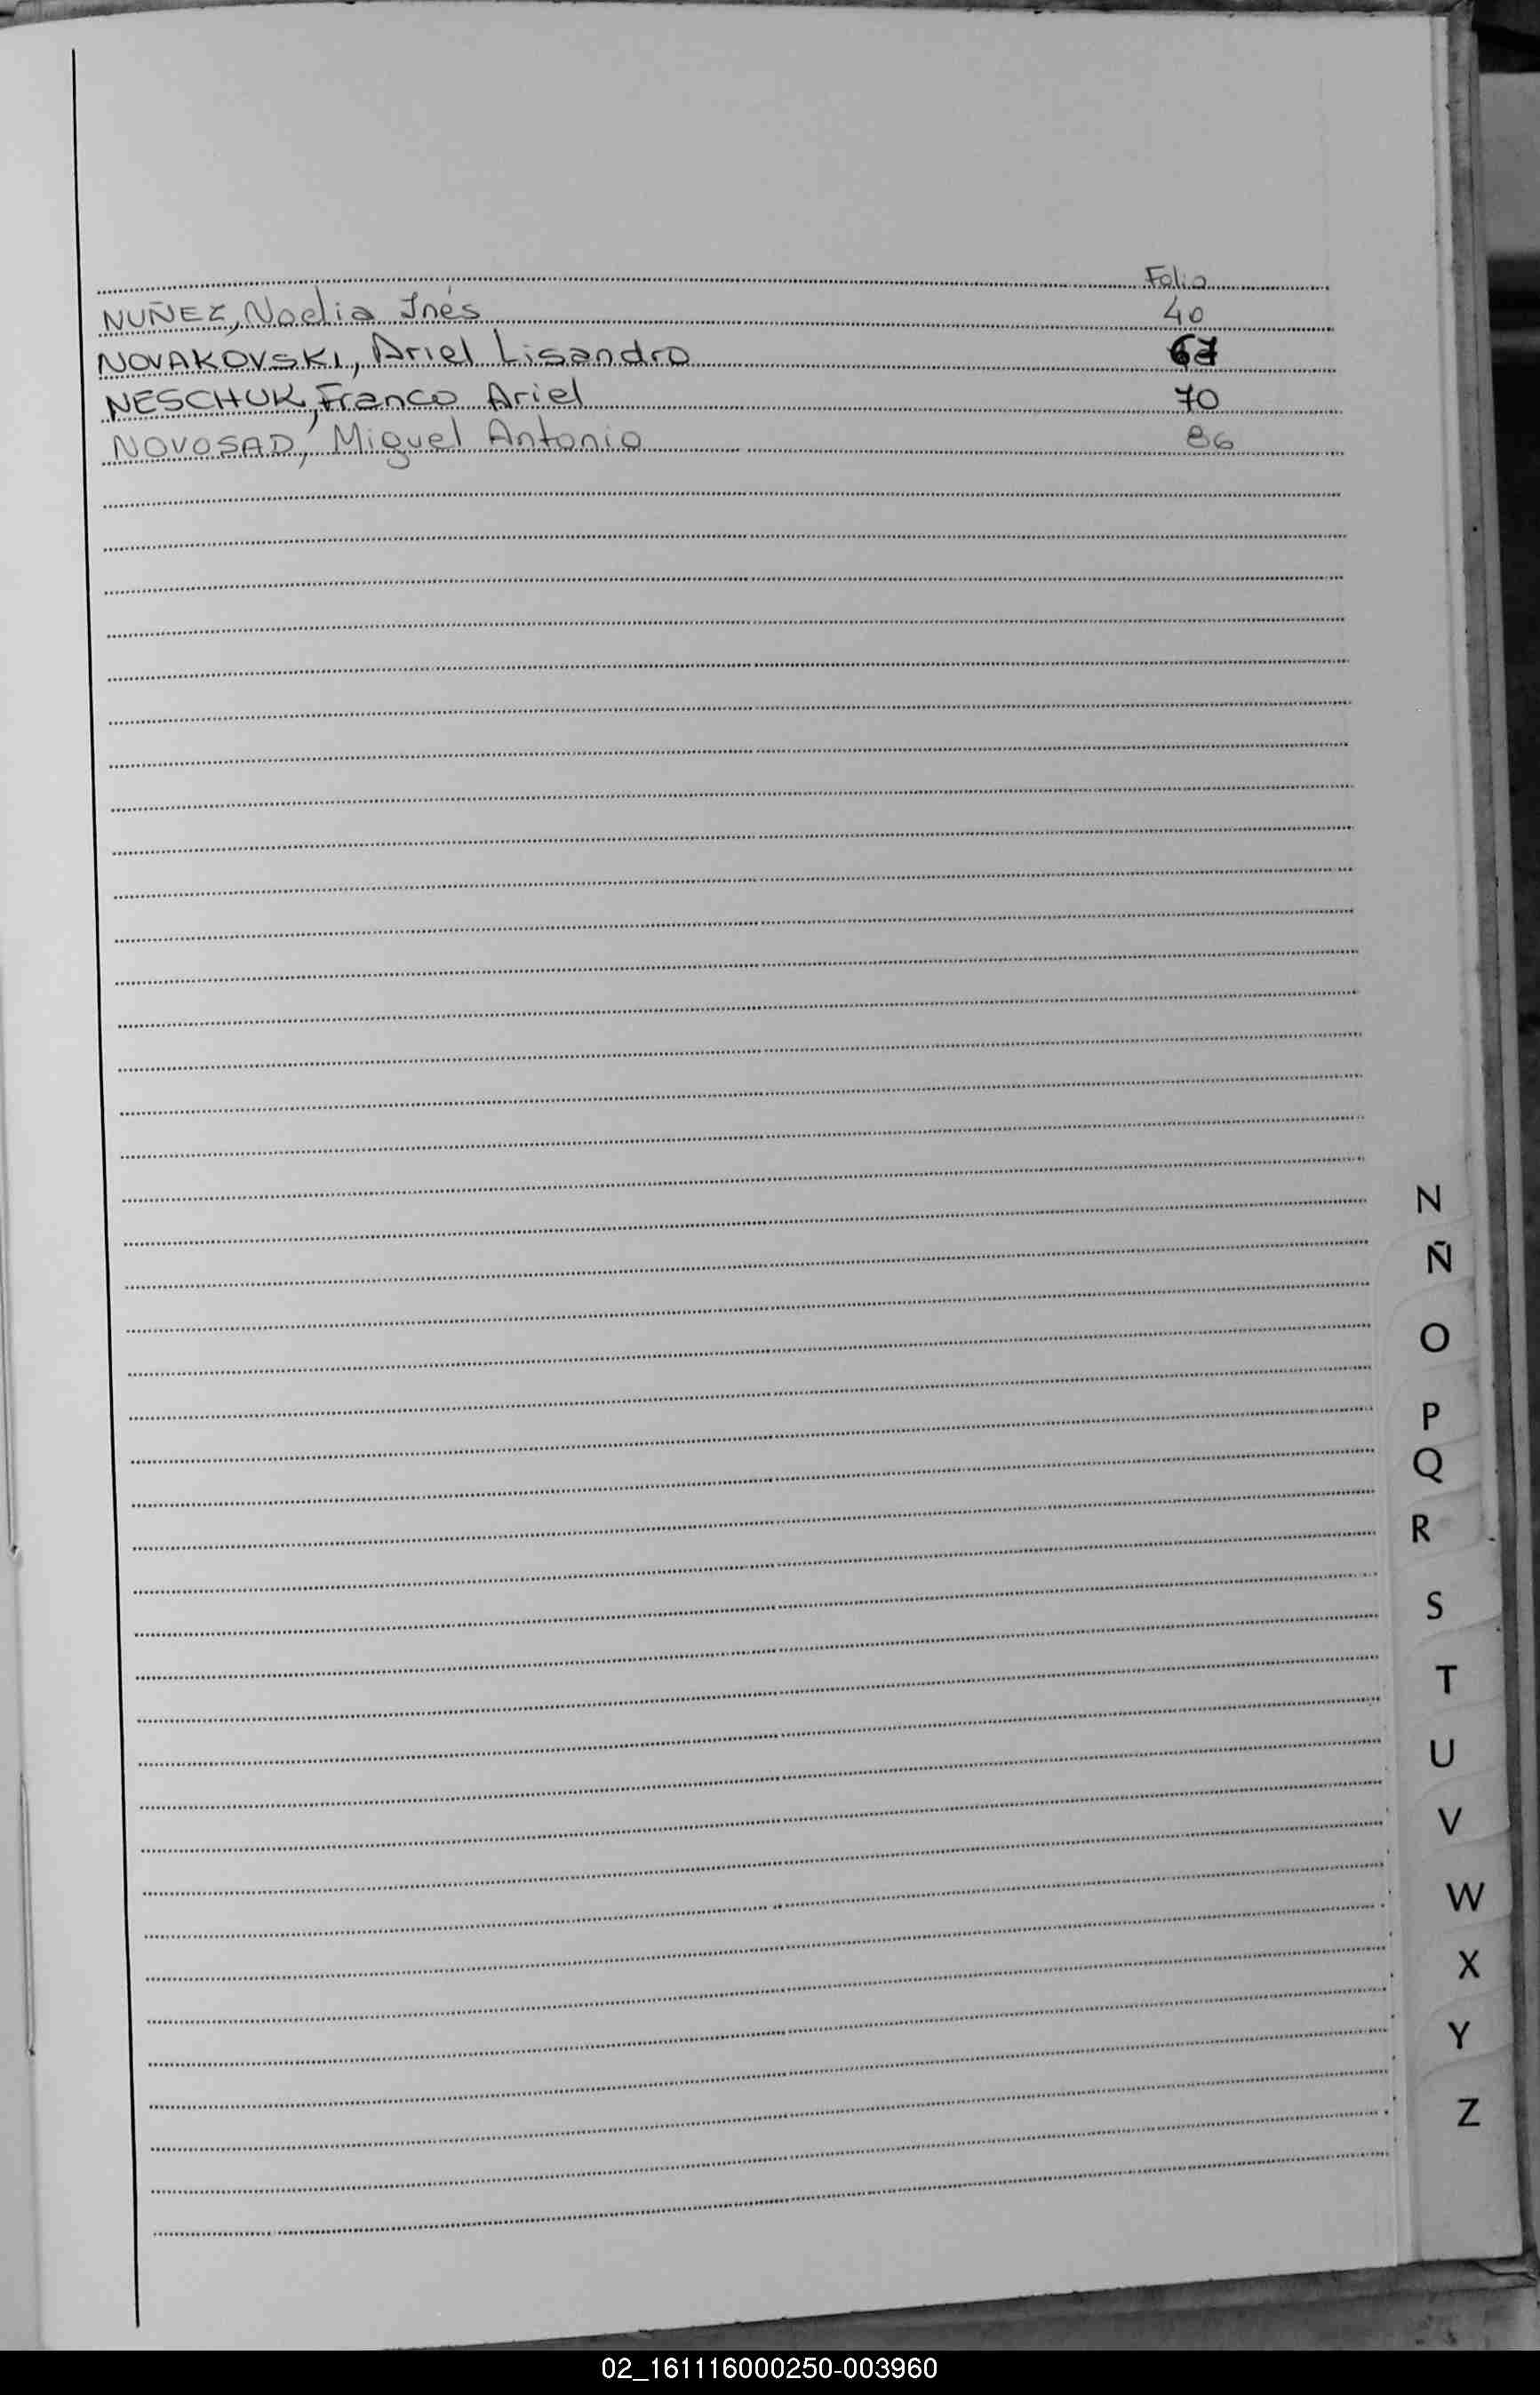 Folio
NUÑEZ, Noelia Inés 40
NOVAKOVSKI, Ariel Lisandro 67
NESCHUK, Franco Ariel 70
NOVOSAD, Miguel Antonio 86
N
Ñ
O
P
Q
R
S
T
U
V
W
X
Y
Z
02_161116000250-003960